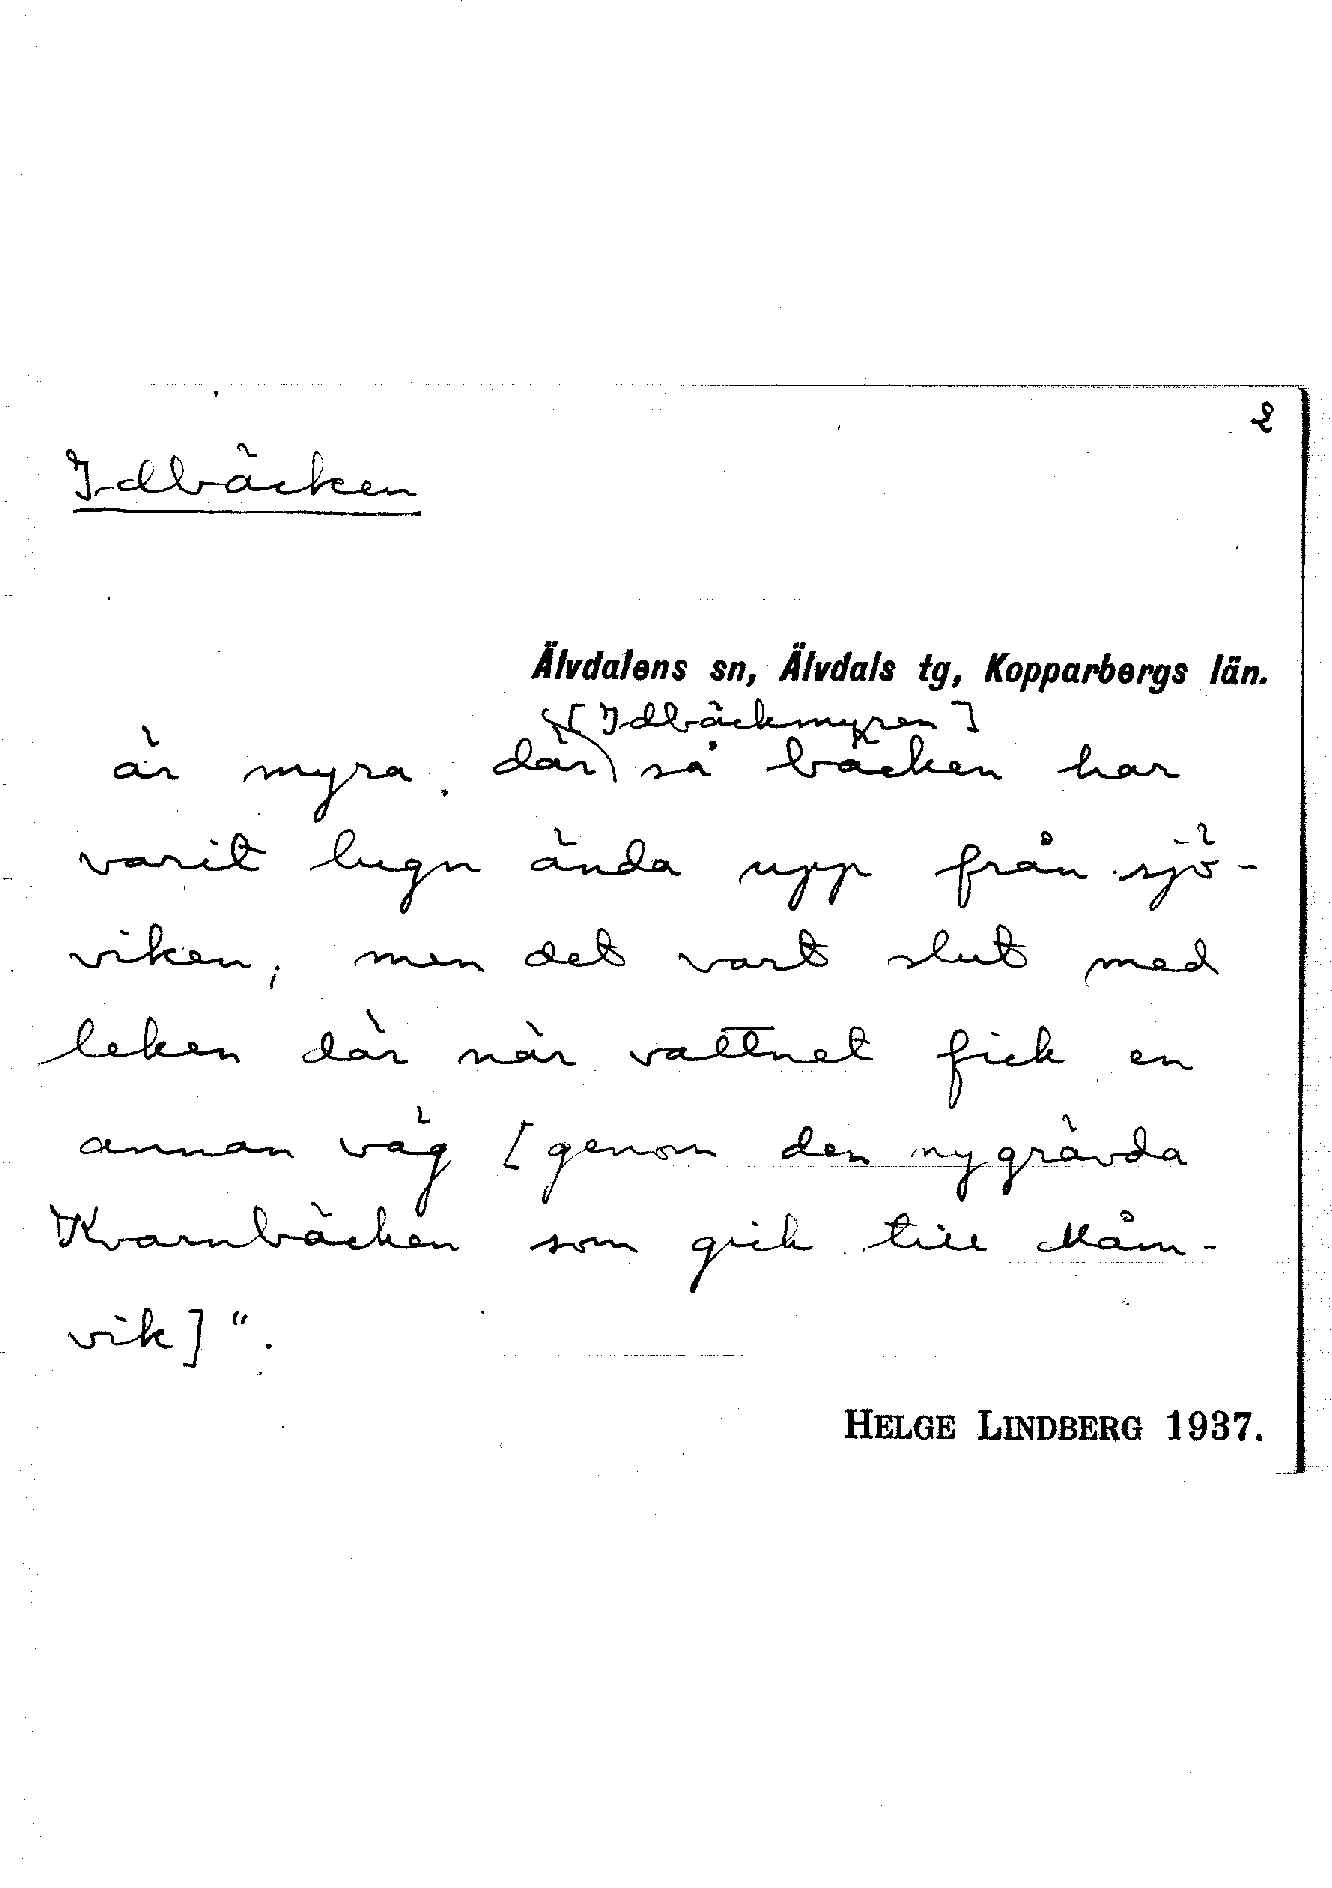 2
Idbäcken
Älvdalens sn, Älvdals tg, Kopparbergs län.
[Idbäckmyren]
är myra där så bäcken har
varit lugn ända upp från sjö-
viken, men det vart slut med
leken där när vattnet fick en
annan väg [genom den nygrävda
Kvarnbäcken som gick till Måm-
vik]".
HELGE LINDBERG 1937.